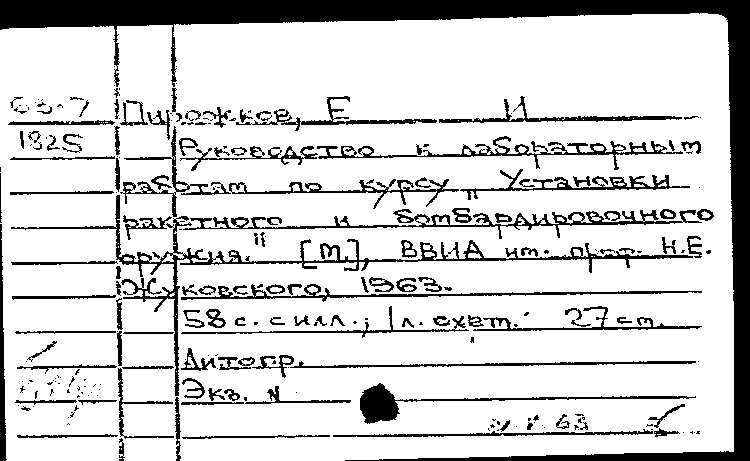 63-7 Пирожков, Е И
1825 Руководство к лабораторным
работам по курсу "Установки
ракетного и бомбардировочного
оружия." [М.], ВВИА им. проф. Н.Е.
Жуковского, 1963.
58 с. с илл.; 1 л. схем. 27 см.
Литогр.
Экз. N
63